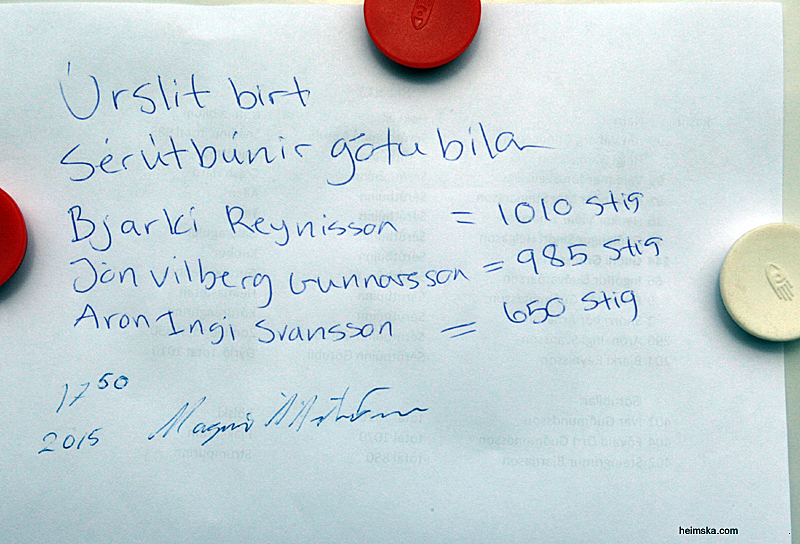 Úrslit birt
Sérútbúnir götubílar
Bjarki Reynisson = 1010 stig
Jón Vilberg Gunnarsson = 985 stig
Aron Ingi Svansson = 650 stig
17 50
2015 Magnús
heimska.com